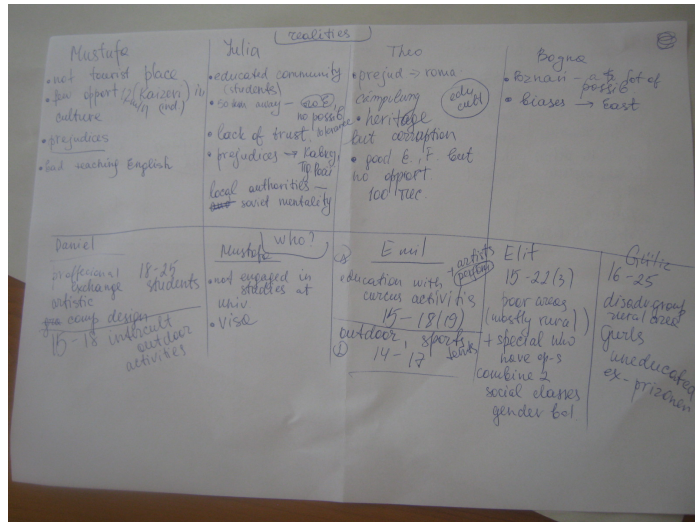 realities
Mustafa
• not tourist place
• few opport. (kaizeri) in
culture
• prejudices
• bad teaching English
Julia
• educated community
(students)
• so far away –
no possib
• lack of trust, tolerance
• prejudices →
local authorities –
soviet mentality
Theo
• prejud → roma
edu
cult
• heritage
but corruption
• good E, F. but
no opport.
Bogna
• Poznań – a lot of
possib
• biases → East
who?
Daniel
proffesional 18-25
exchange students
artistic
comp design
15-18 intercult
outdoor
activities
Mustafa
• not engaged in
studies at
univ
• visa
Emil
+ artists
education with
circus activitis
15-18(19)
outdoor, sports
14-17
Elif
15-22(3)
poor areas
(mostly rural)
+ special who
have op-s
combine 2
social classes
gender bal.
16-25
disadv group
rural area
Gurls
uneducated
ex-prizoners